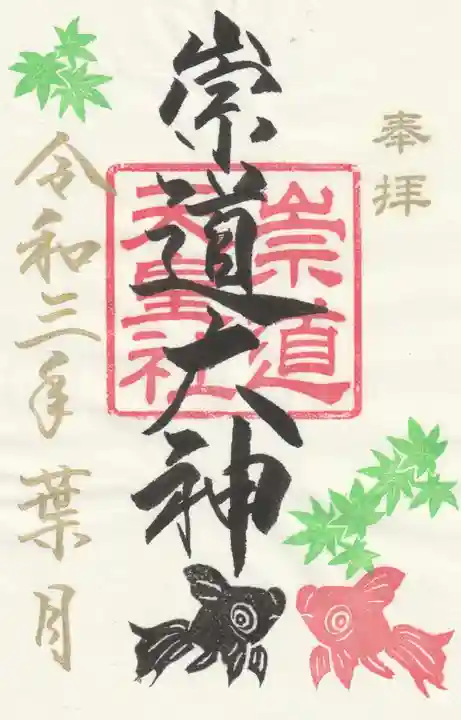 奉拝
崇道大神
崇道
天皇社
令和三年葉月